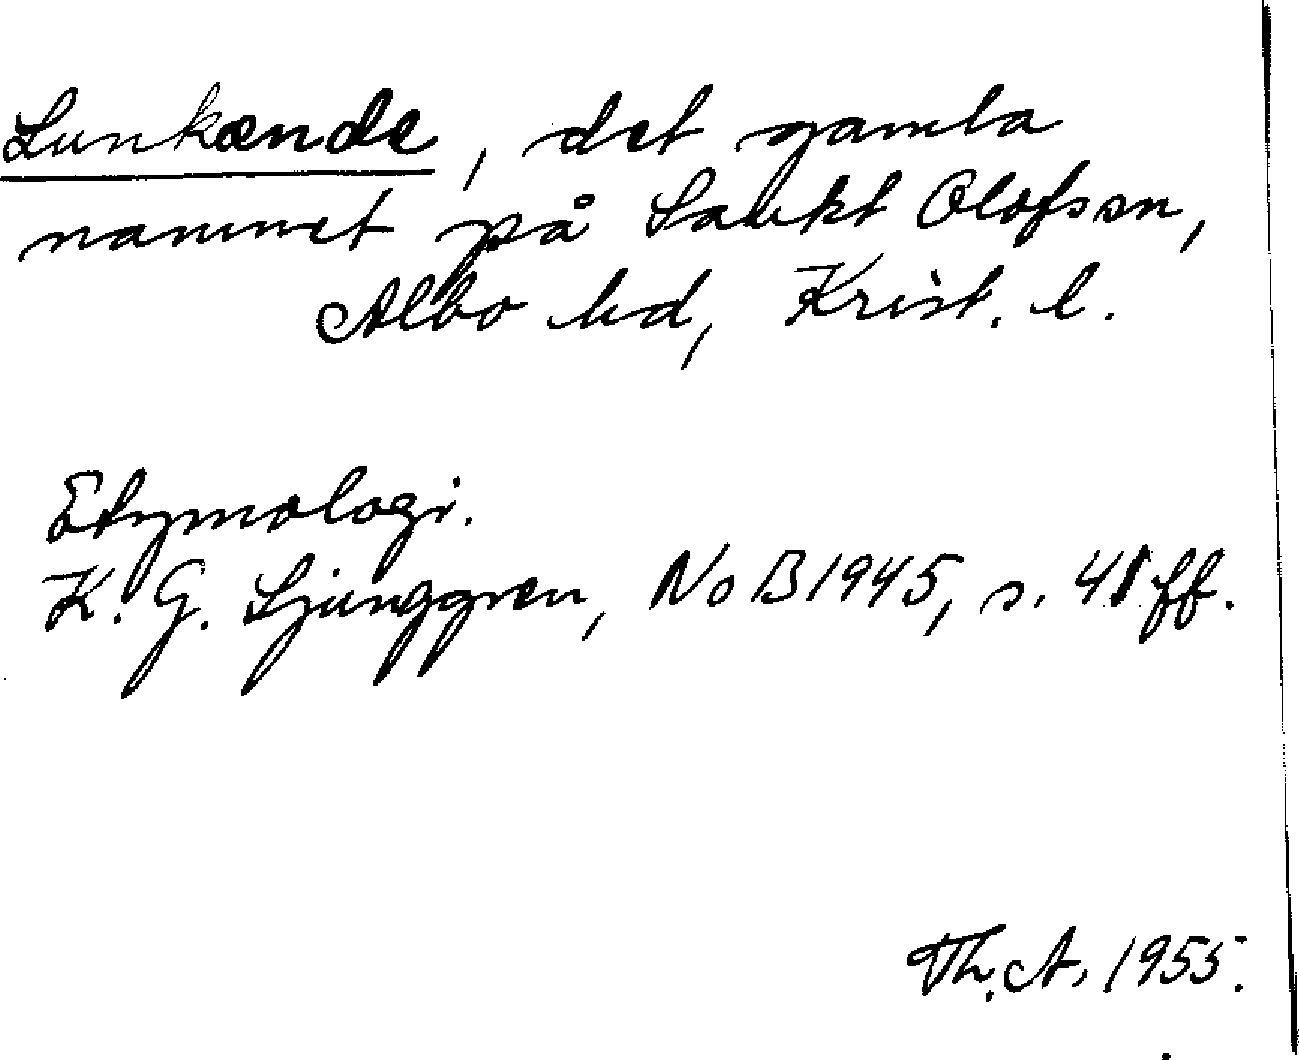 Lunkænde, det gamla
namnet på Sankt Olofssn,
Albo hd, Krist. l.
Etymologi.
K. G. Ljunggren, NoB 1945, s. 41 ff.
Th. A. 1955.